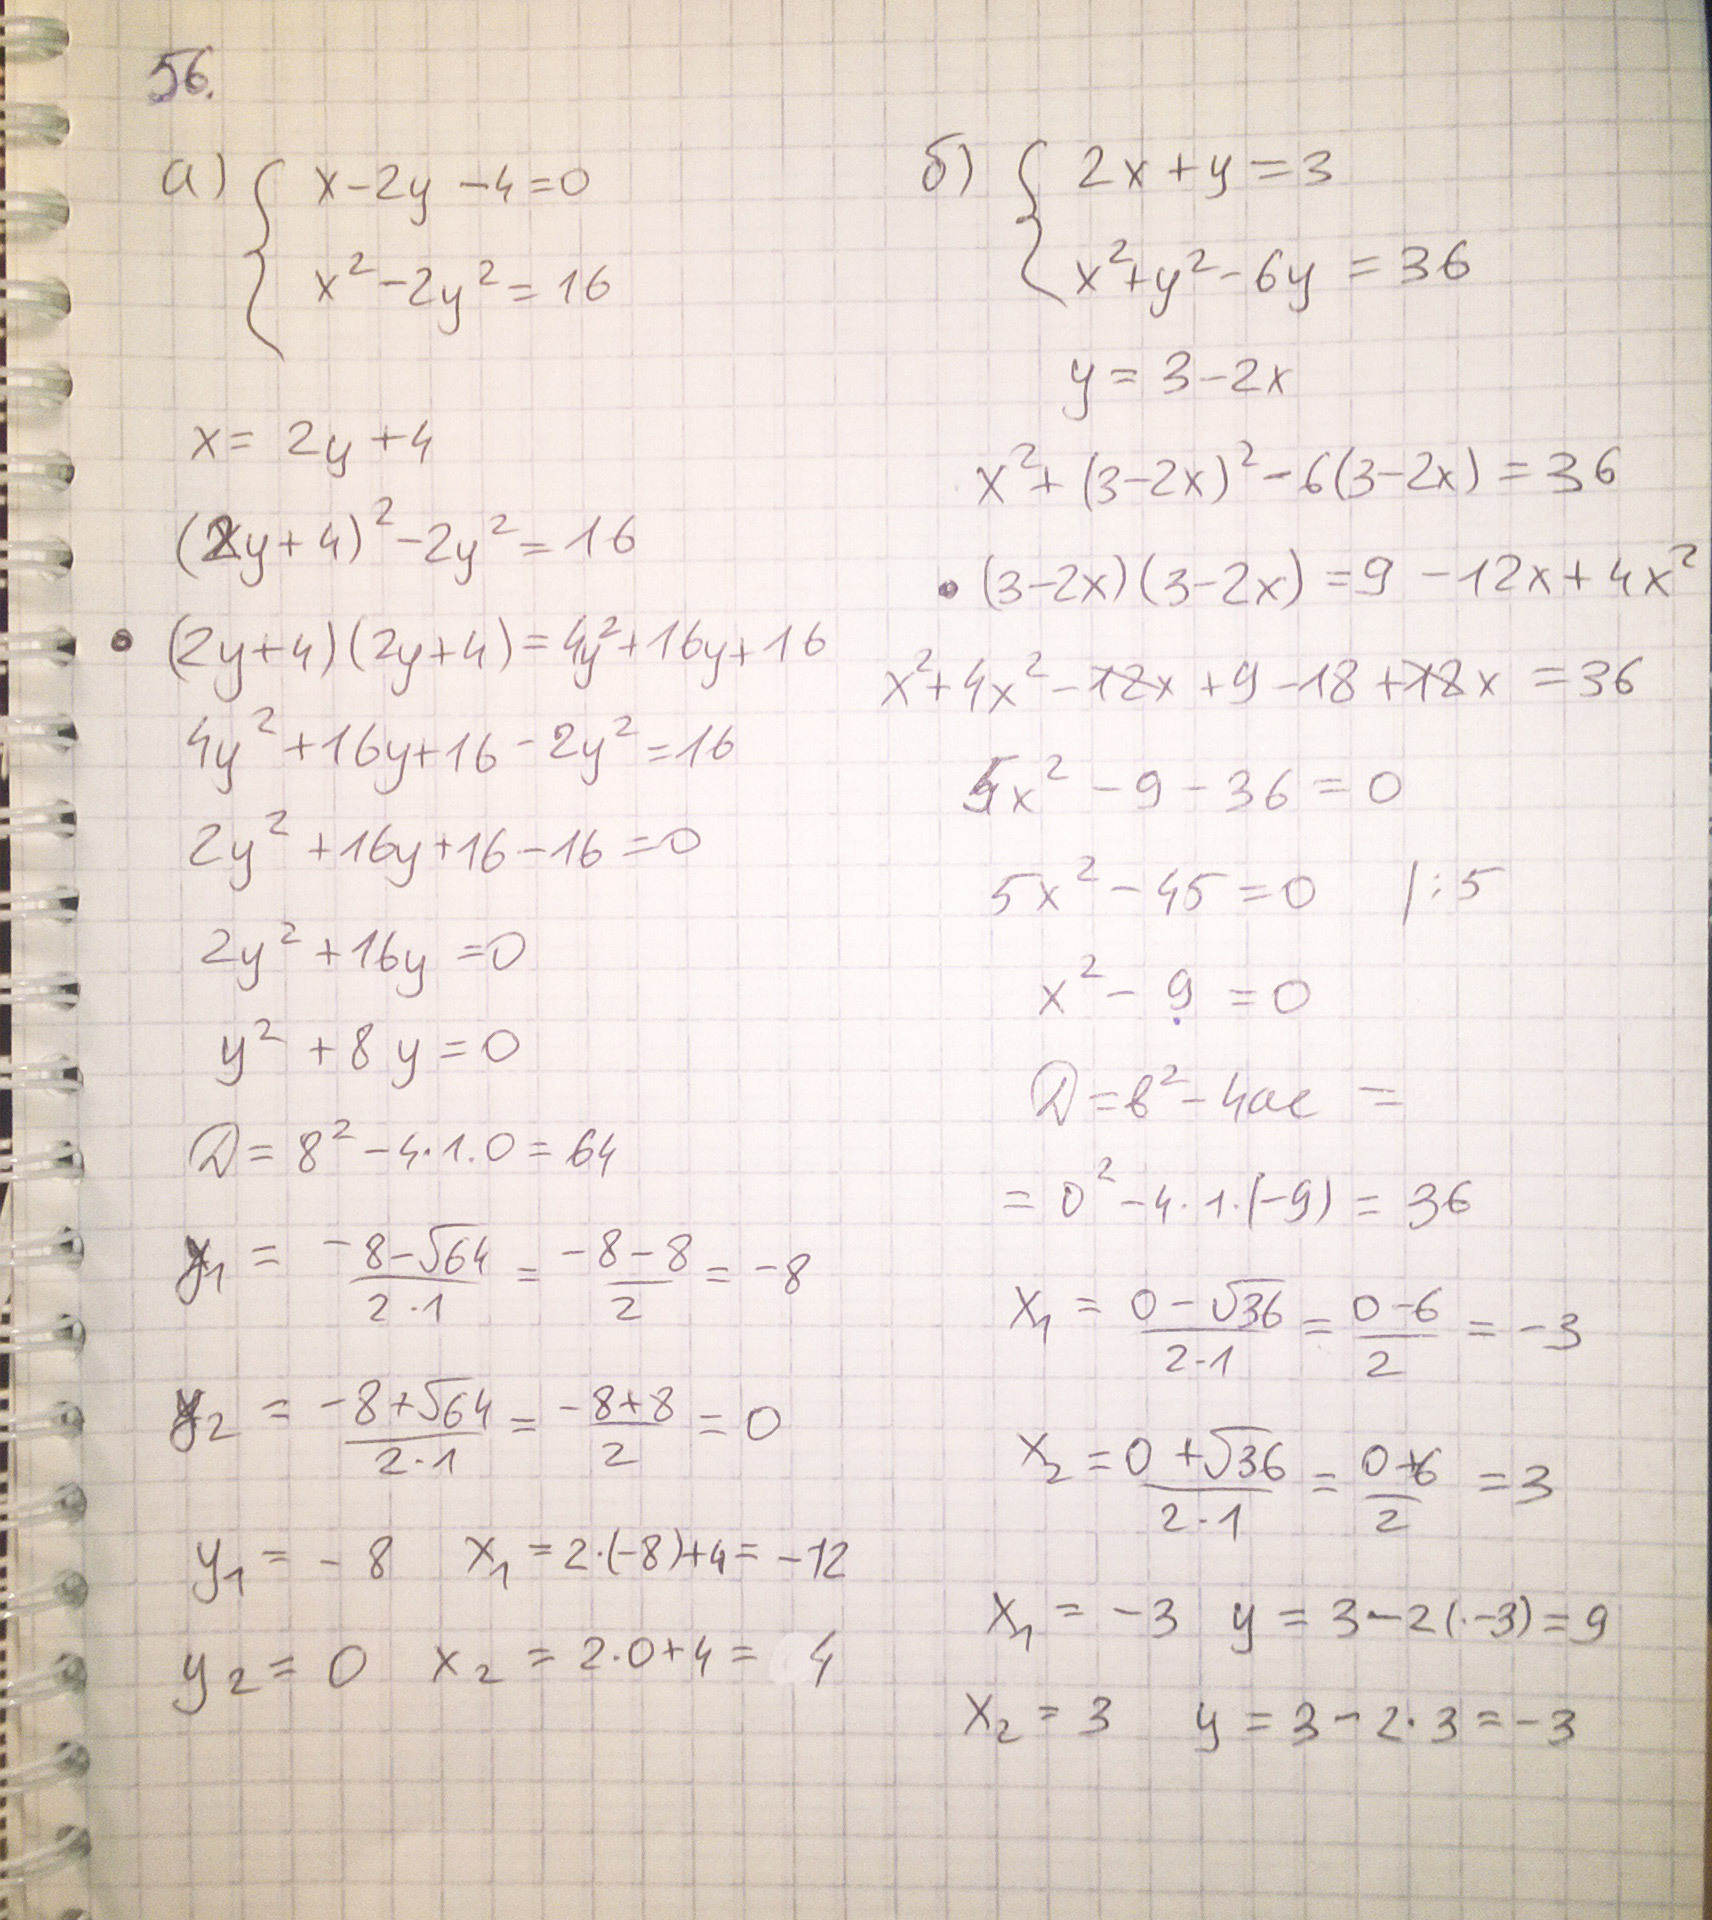 56.
а) { x-2y-4=0
x²-2y²=16
x= 2y+4
(2y+4)²-2y²=16
• (2y+4)(2y+4)=4y²+16y+16
4y²+16y+16-2y²=16
2y²+16y+16-16=0
2y²+16y=0
y²+8y=0
D=8²-4·1·0=64
y₁ = (-8-√64)/(2·1) = (-8-8)/2 = -8
y₂ = (-8+√64)/(2·1) = (-8+8)/2 = 0
y₁ = -8 x₁ = 2·(-8)+4= -12
y₂ = 0 x₂ = 2·0+4= 4
б) { 2x+y=3
x²+y²-6y=36
y=3-2x
x²+(3-2x)²-6(3-2x)=36
• (3-2x)(3-2x)=9-12x+4x²
x²+4x²-12x+9-18+12x=36
5x²-9-36=0
5x²-45=0 /:5
x²-9=0
D=в²-4ac=
=0²-4·1·(-9)=36
x₁ = (0-√36)/(2·1) = (0-6)/2 = -3
x₂ = (0+√36)/(2·1) = (0+6)/2 = 3
x₁ = -3 y = 3-2(·-3)=9
x₂ = 3 y = 3-2·3=-3